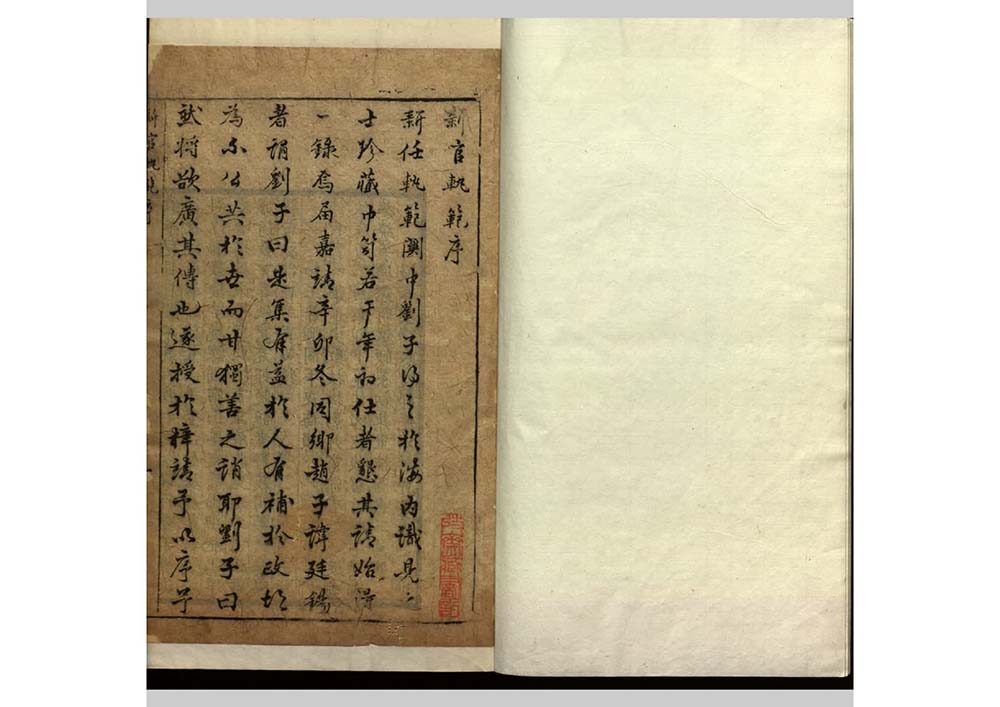 新官軌範序
新任軌範関中劉子得之於海内識見之
士珍藏巾笥若干年初仕者懇其請始得
一錄焉届嘉靖辛卯冬同鄉趙子諱廷錫
者謂劉子曰是集有益於人有補於政胡
為不公共於世而甘獨善之誚耶劉子曰
然将欲廣其傳也遂授於梓請予以序予
新官軌範序